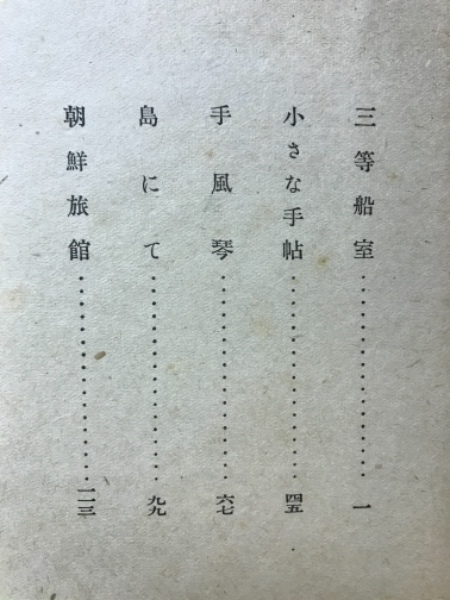 三等船室・・・・・・・・・・・・・・・・一
小さな手帖・・・・・・・・・・・・・・・・四五
手風琴・・・・・・・・・・・・・・・・六七
島にて・・・・・・・・・・・・・・・・九九
朝鮮旅館・・・・・・・・・・・・・・・・一二三